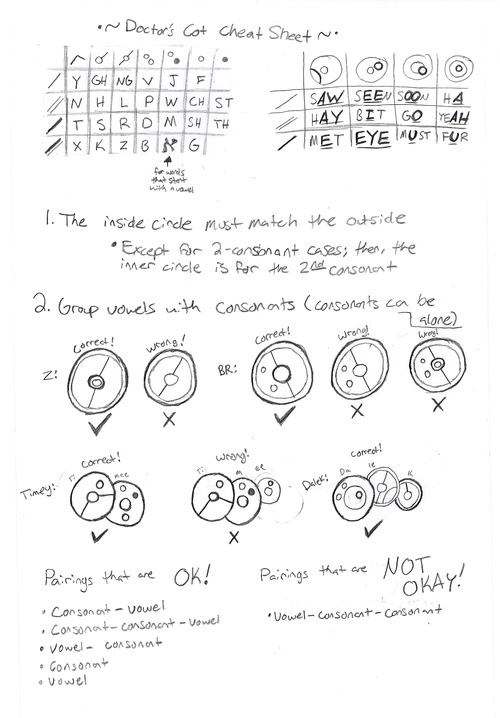 •~ Doctor's Cot Cheat Sheet ~•
Y GH NG V J F
N H L P W CH ST
T S R D M SH TH
X K Z B א G
for words
that start
with a vowel
SAW SEEN SOON HA
HAY BIT GO YEAH
MET EYE MUST FUR
1. The inside circle must match the outside
• Except for 2-consonant cases; then, the
inner circle is for the 2nd consonant
2. Group vowels with consonants (consonants can be
alone)
Correct! Wrong! Correct! Wrong! Wrong!
Z: BR:
Correct! Wrong! Correct!
Timey: Ti mee Ti m ee Dalek: Da le K
Pairings that are OK!
• Consonant - vowel
• Consonant - consonant - vowel
• Vowel - consonant
• Consonant
• Vowel
Pairings that are NOT
OKAY!
• Vowel - consonant - consonant